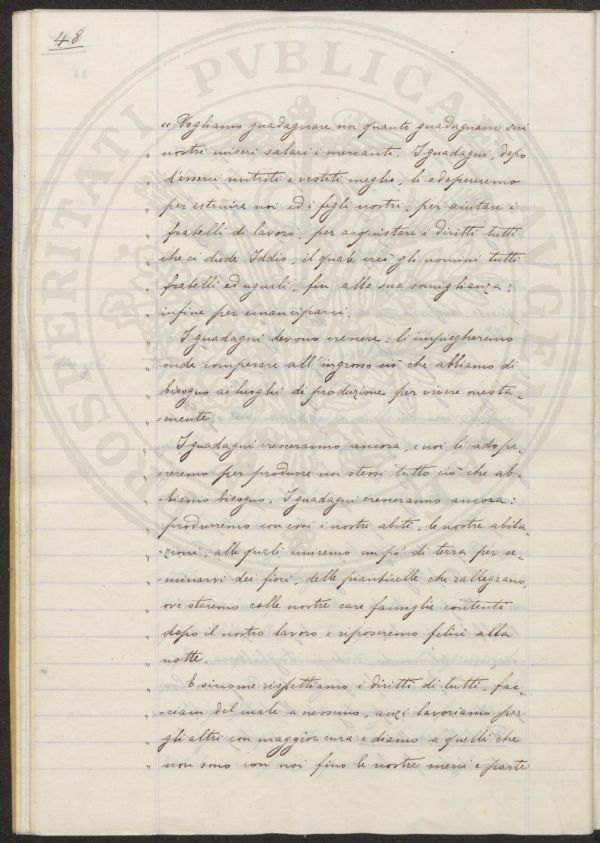 48
PROSPERITATI PVBLICAE AVGENDAE
"Vogliamo guadagnare noi quanto guadagnano sui
" nostri miseri salari i mercanti. I guadagni, dopo
" d'esserci nutriti e vestiti meglio, li adopereremo
" per istruire noi ed i figli nostri, per aiutare i
" fratelli di lavoro, per acquistare i diritti tutti
" che ci diede Iddio, il quale creò gli uomini tutti
" fratelli ed uguali, fin alla sua somiglianza;
" infine per emanciparci.
" I guadagni devono crescere; li impiegheremo
" onde comperare all'ingrosso ciò che abbiamo di
" bisogno ai luoghi di produzione per vivere onesta-
" mente.
" I guadagni cresceranno ancora, e noi li adope-
" reremo per produrre noi stessi tutto ciò che ab-
" biamo bisogno. I guadagni cresceranno ancora:
" produrremo con essi i nostri abiti, le nostre abita-
" zioni, alle quali uniremo un pò di terra per se-
" minarvi dei fiori, delle pianticelle che rallegrano,
" ove staremo colle nostre care famiglie contenti
" dopo il nostro lavoro e riposeremo felici alla
" notte.
" E siccome rispettiamo i diritti di tutti, fac-
" ciam del male a nessuno, anzi lavoriamo per
" gli altri con maggior cura e diamo a quelli che
" non sono con noi fino le nostre merci e parte